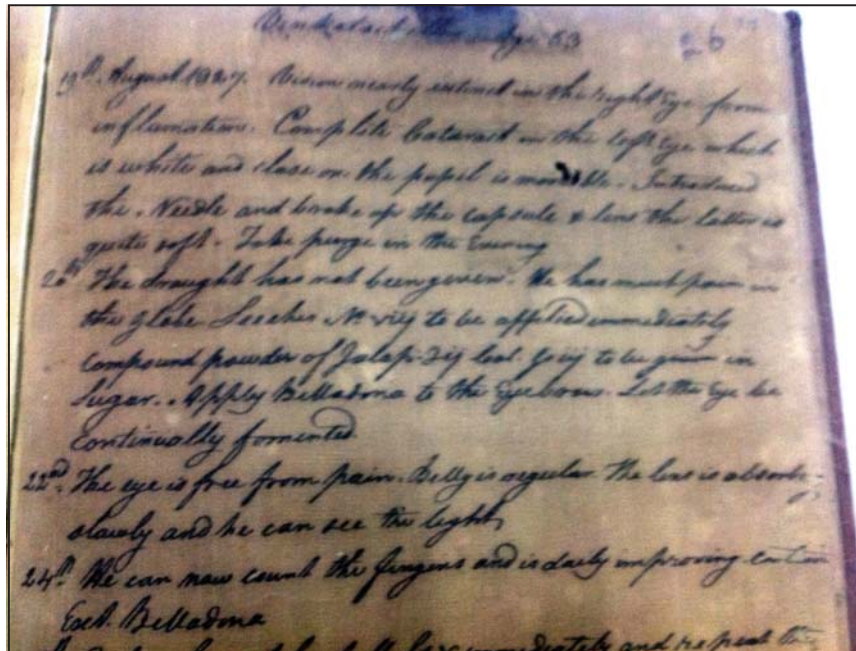 Age 53 26
19th August 1827. Vision nearly extinct in the right Eye from
inflamation. Complete Cataract in the left Eye which
is white and close on the pupil is moveable. Introduced
the Needle and broke up the capsule & lens the latter is
quite soft. Take purge in the Evening
20th The draught has not been given. He has much pain in
the globe Leeches No vij to be applied immediately
Compound powder of Jalap to be given in
Sugar. Apply Belladona to the Eyebrows. Let the Eye be
Continually fomented
22nd. The eye is free from pain. Belly is regular the lens is absorbg
slowly and he can see the light,
24th He can now count the fingers and is daily improving
Ext. Belladona
immediately and repeat the